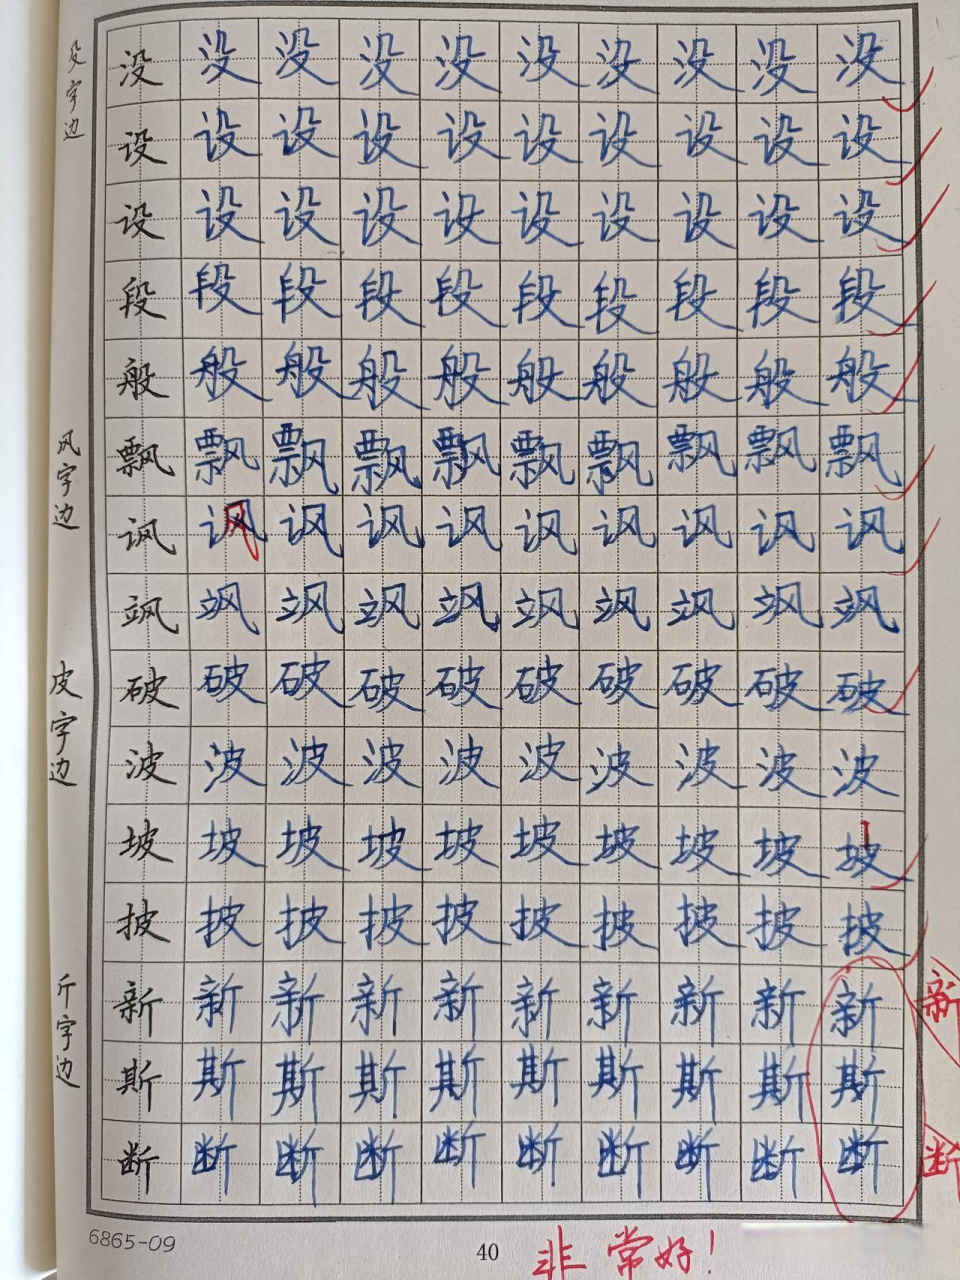 没 没 没 没 没 没 没 没 没 没
设 设 设 设 设 设 设 设 设 设
设 设 设 设 设 设 设 设 设 设
段 段 段 段 段 段 段 段 段 段
般 般 般 般 般 般 般 般 般 般
飘 飘 飘 飘 飘 飘 飘 飘 飘 飘
讽 讽 讽 讽 讽 讽 讽 讽 讽 讽
飒 飒 飒 飒 飒 飒 飒 飒 飒 飒
破 破 破 破 破 破 破 破 破 破
波 波 波 波 波 波 波 波 波 波
坡 坡 坡 坡 坡 坡 坡 坡 坡 坡
披 披 披 披 披 披 披 披 披 披
新 新 新 新 新 新 新 新 新 新 新
斯 斯 斯 斯 斯 斯 斯 斯 斯 斯
断 断 断 断 断 断 断 断 断 断 断
殳字边
风字边
皮字边
斤字边
6865-09
40
非常好!